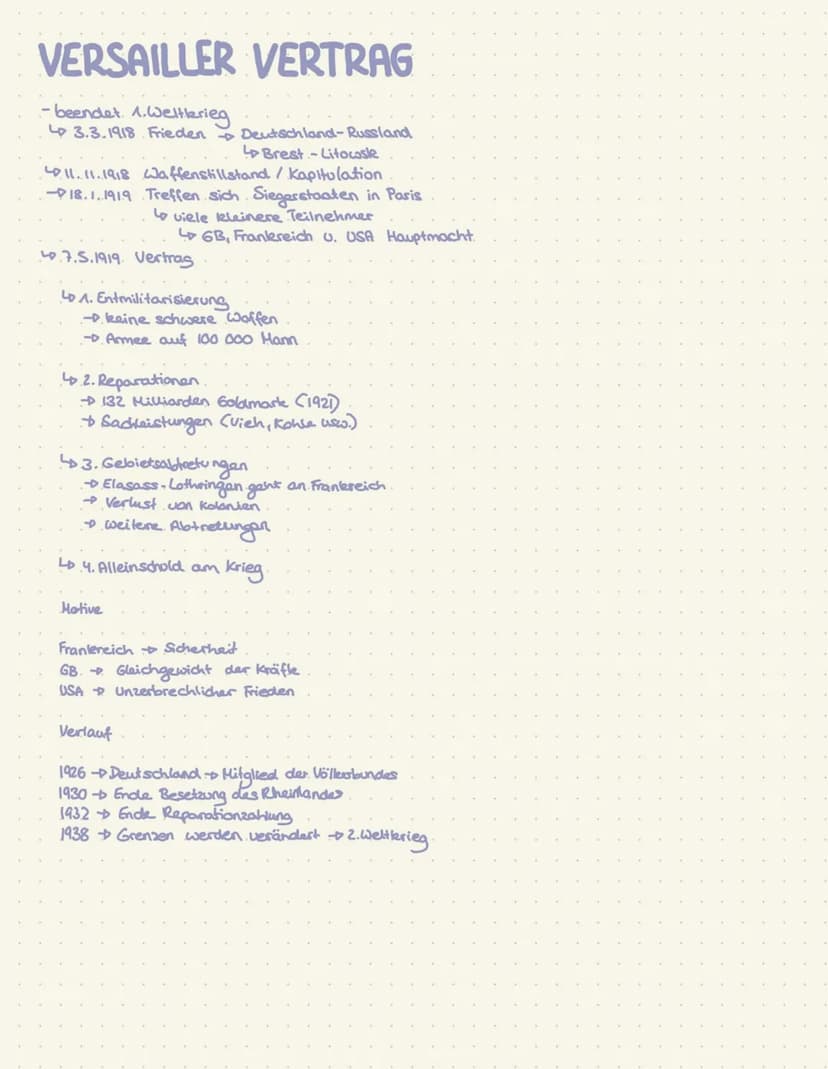 VERSAILLER VERTRAG
- beendet 1.Weltkrieg
↳ 3.3.1918 Frieden → Deutschland-Russland
↳ Brest-Litowsk
↳ 11.11.1918 Waffenstillstand / Kapitulation
→ 18.1.1919 Treffen sich Siegerstaaten in Paris
↳ viele kleinere Teilnehmer
↳ GB, Frankreich u. USA Hauptmacht
↳ 7.5.1919 Vertrag
↳ 1. Entmilitarisierung
→ keine schwere Waffen
→ Armee auf 100 000 Mann
↳ 2. Reparationen
→ 132 Milliarden Goldmark (1921)
→ Sachleistungen (Vieh, Kohle usw.)
↳ 3. Gebietsabtretungen
→ Elasass-Lothringen geht an Frankreich
→ Verlust von Kolonien
→ weitere Abtretungen
↳ 4. Alleinschuld am Krieg
Motive
Frankreich → Sicherheit
GB → Gleichgewicht der Kräfte
USA → Unzerbrechlicher Frieden
Verlauf
1926 → Deutschland → Mitglied der Völkerbundes
1930 → Ende Besetzung des Rheinlandes
1932 → Ende Reparationzahlung
1938 → Grenzen werden verändert → 2.Weltkrieg